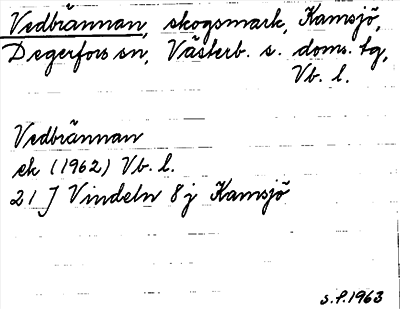 Vedbrännan, skogsmark, Kamsjö,
Degerfors sn, Västerb. s. doms. tg,
Vb. l.
Vedbrännan
ek (1962) Vb. l.
21 J Vindeln 8 j Kamsjö
s. f. 1963